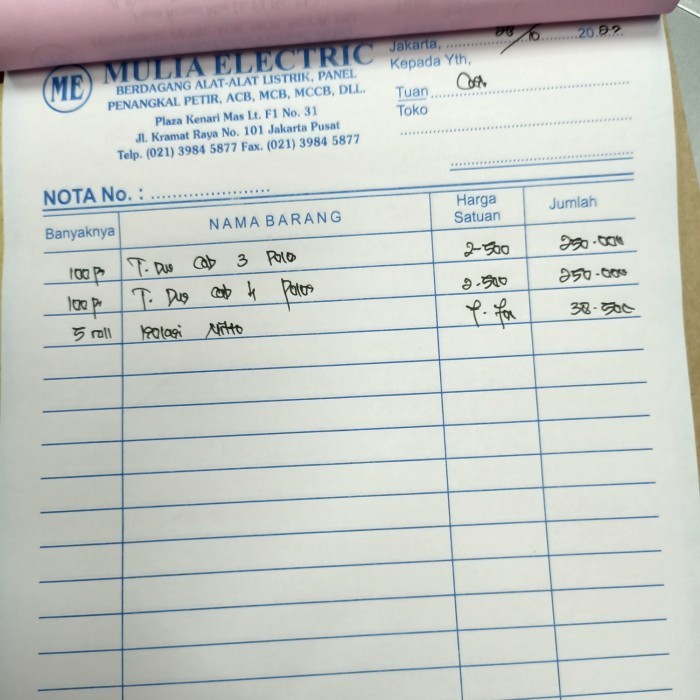 MULIA ELECTRIC
ME
BERDAGANG ALAT-ALAT LISTRIK, PANEL
PENANGKAL PETIR, ACB, MCB, MCCB, DLL.
Plaza Kenari Mas Lt. F1 No. 31
Jl. Kramat Raya No. 101 Jakarta Pusat
Telp. (021) 3984 5877 Fax. (021) 3984 5877
Jakarta, 20
Kepada Yth,
Tuan
Toko
NOTA No. :
Banyaknya NAMA BARANG Harga Satuan Jumlah
T. Dus cab 3 Polos 2.500 250.000
T. Dus cab 4 Polos 2.500 250.000
5 roll Isolasi Nitto 38.500